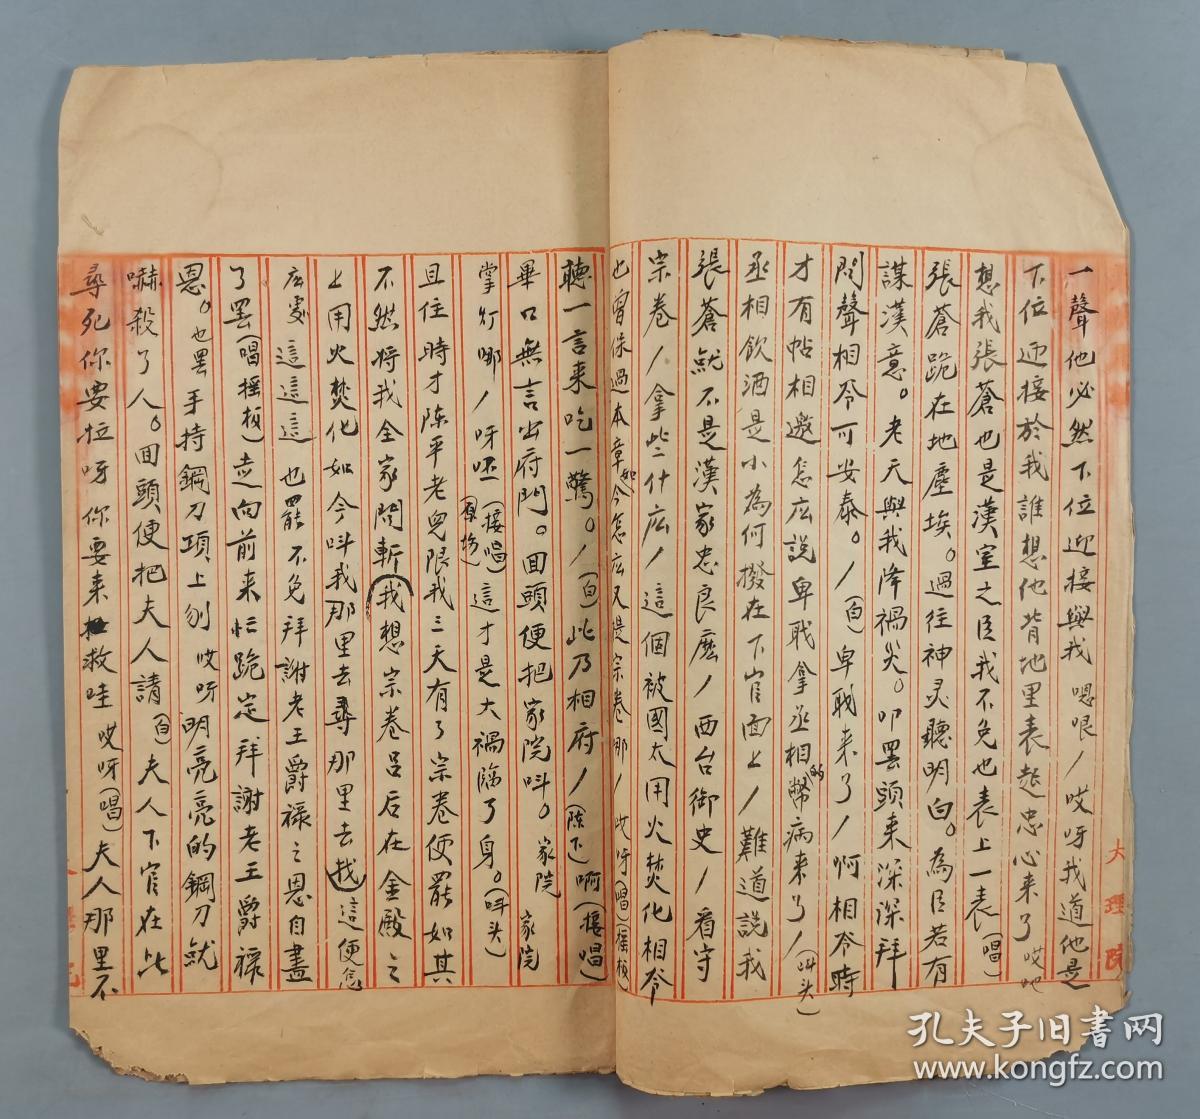 一聲他必然下位迎接與我嗯哏哎呀我道他是
下位迎接於我誰想他背地里表起忠心来了哎吔
想我張蒼也是漢室之臣我不免也表上一表(唱)
張蒼跪在地塵埃。過往神灵聽明白。為臣若有
謀漢意。老天與我降禍災。叩罢頭来深深拜
問聲相爷可安泰。(白)卑戝来了啊相爷時
才有帖相邀怎庅説卑戝拿丞相的幣病来了(叫头)
丞相飲酒是小為何撥在下官面上難道説我
張蒼就不是漢家忠良麽西台御史看守
宗卷拿些什庅這個被國太用火焚化相爷
也曾保過本章如今怎庅又提宗卷那哎呀(唱)(摇板)
聽一言来吃一驚。(白)此乃相府(陈下)啊(接唱)
畢口無言出府門。囬頭便把家院呌。家院家院
掌灯哪呀呸(原场)(接唱)這才是大禍臨了身。(叫头)
且住時才陈平老兒限我三天有了宗卷便罷如其
不然将我全家問斬我想宗卷吕后在金殿之
上用火焚化如今呌我那里去尋那里去找這便怎
庅処這這這也罷不免拜謝老王爵禄之恩自盡
了罢(唱摇板)走向前来忙跪定拜謝老王爵禄
恩。也罢手持鋼刀項上刎哎呀明亮亮的鋼刀就
嚇殺了人。囬頭便把夫人請(白)夫人下官在此
尋死你要拉呀你要来救哇哎呀(唱)夫人那里不
大理院
孔夫子旧書网
www.kongfz.com